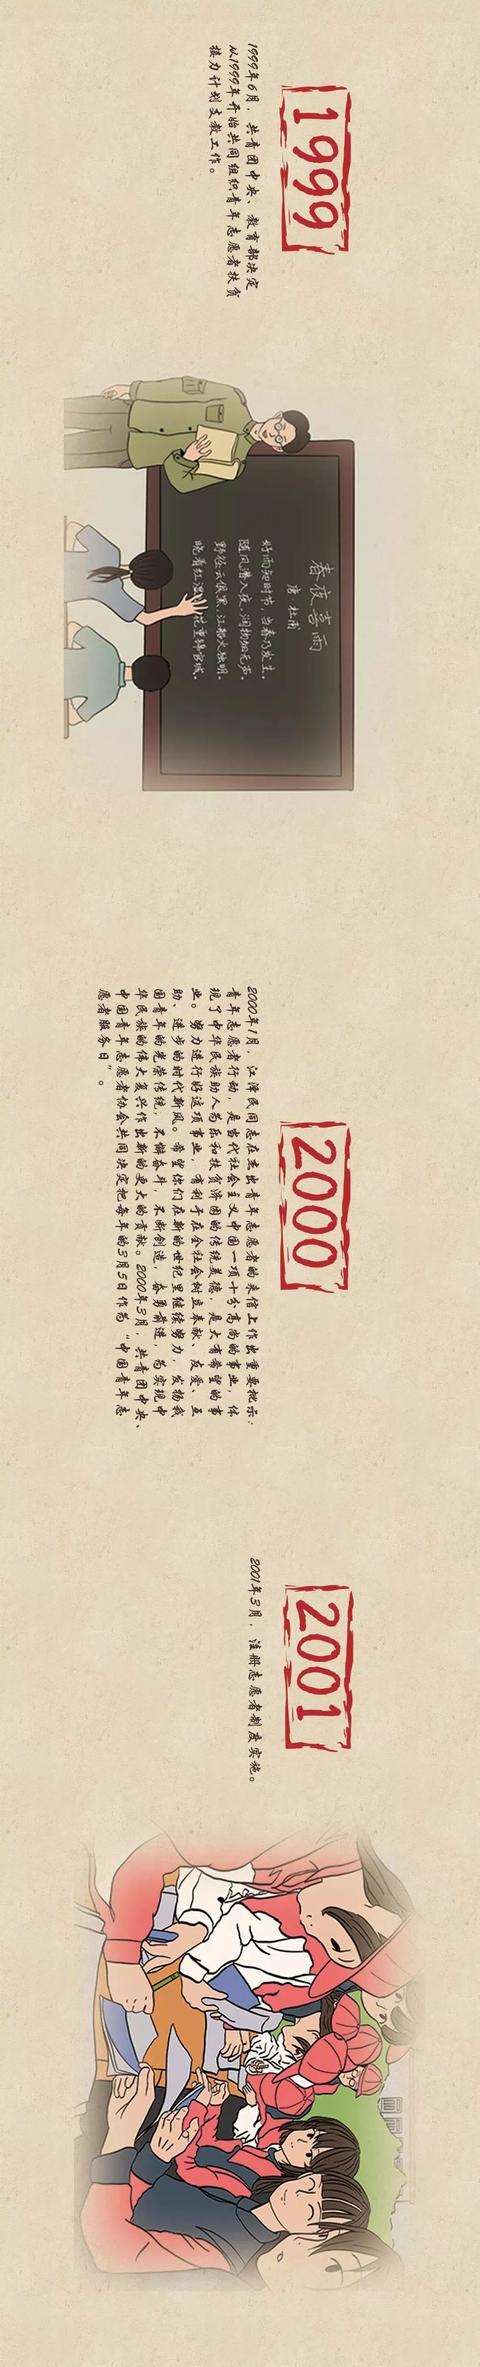 1999
1999年6月，共青团中央、教育部决定
从1999年开始共同组织青年志愿者扶贫
接力计划支教工作。
春夜喜雨
唐·杜甫
好雨知时节，当春乃发生。
随风潜入夜，润物细无声。
野径云俱黑，江船火独明。
晓看红湿 花重锦官城。
2000
2000年1月，江泽民同志在杰出青年志愿者的来信上作出重要批示：
青年志愿者行动，是当代社会主义中国一项十分高尚的事业，体
现了中华民族助人为乐和扶贫济困的传统美德，是大有希望的事
业。努力进行好这项事业，有利于在全社会树立奉献、友爱、互
助、进步的时代新风。希望你们在新的世纪里继续努力，发扬我
国青年的光荣传统，不懈奋斗，不断创造，奋勇前进，为实现中
华民族的伟大复兴作出新的更大的贡献。2000年3月，共青团中央、
中国青年志愿者协会共同决定把每年的3月5日作为“中国青年志
愿者服务日”。
2001
2001年3月，注册志愿者制度实施。